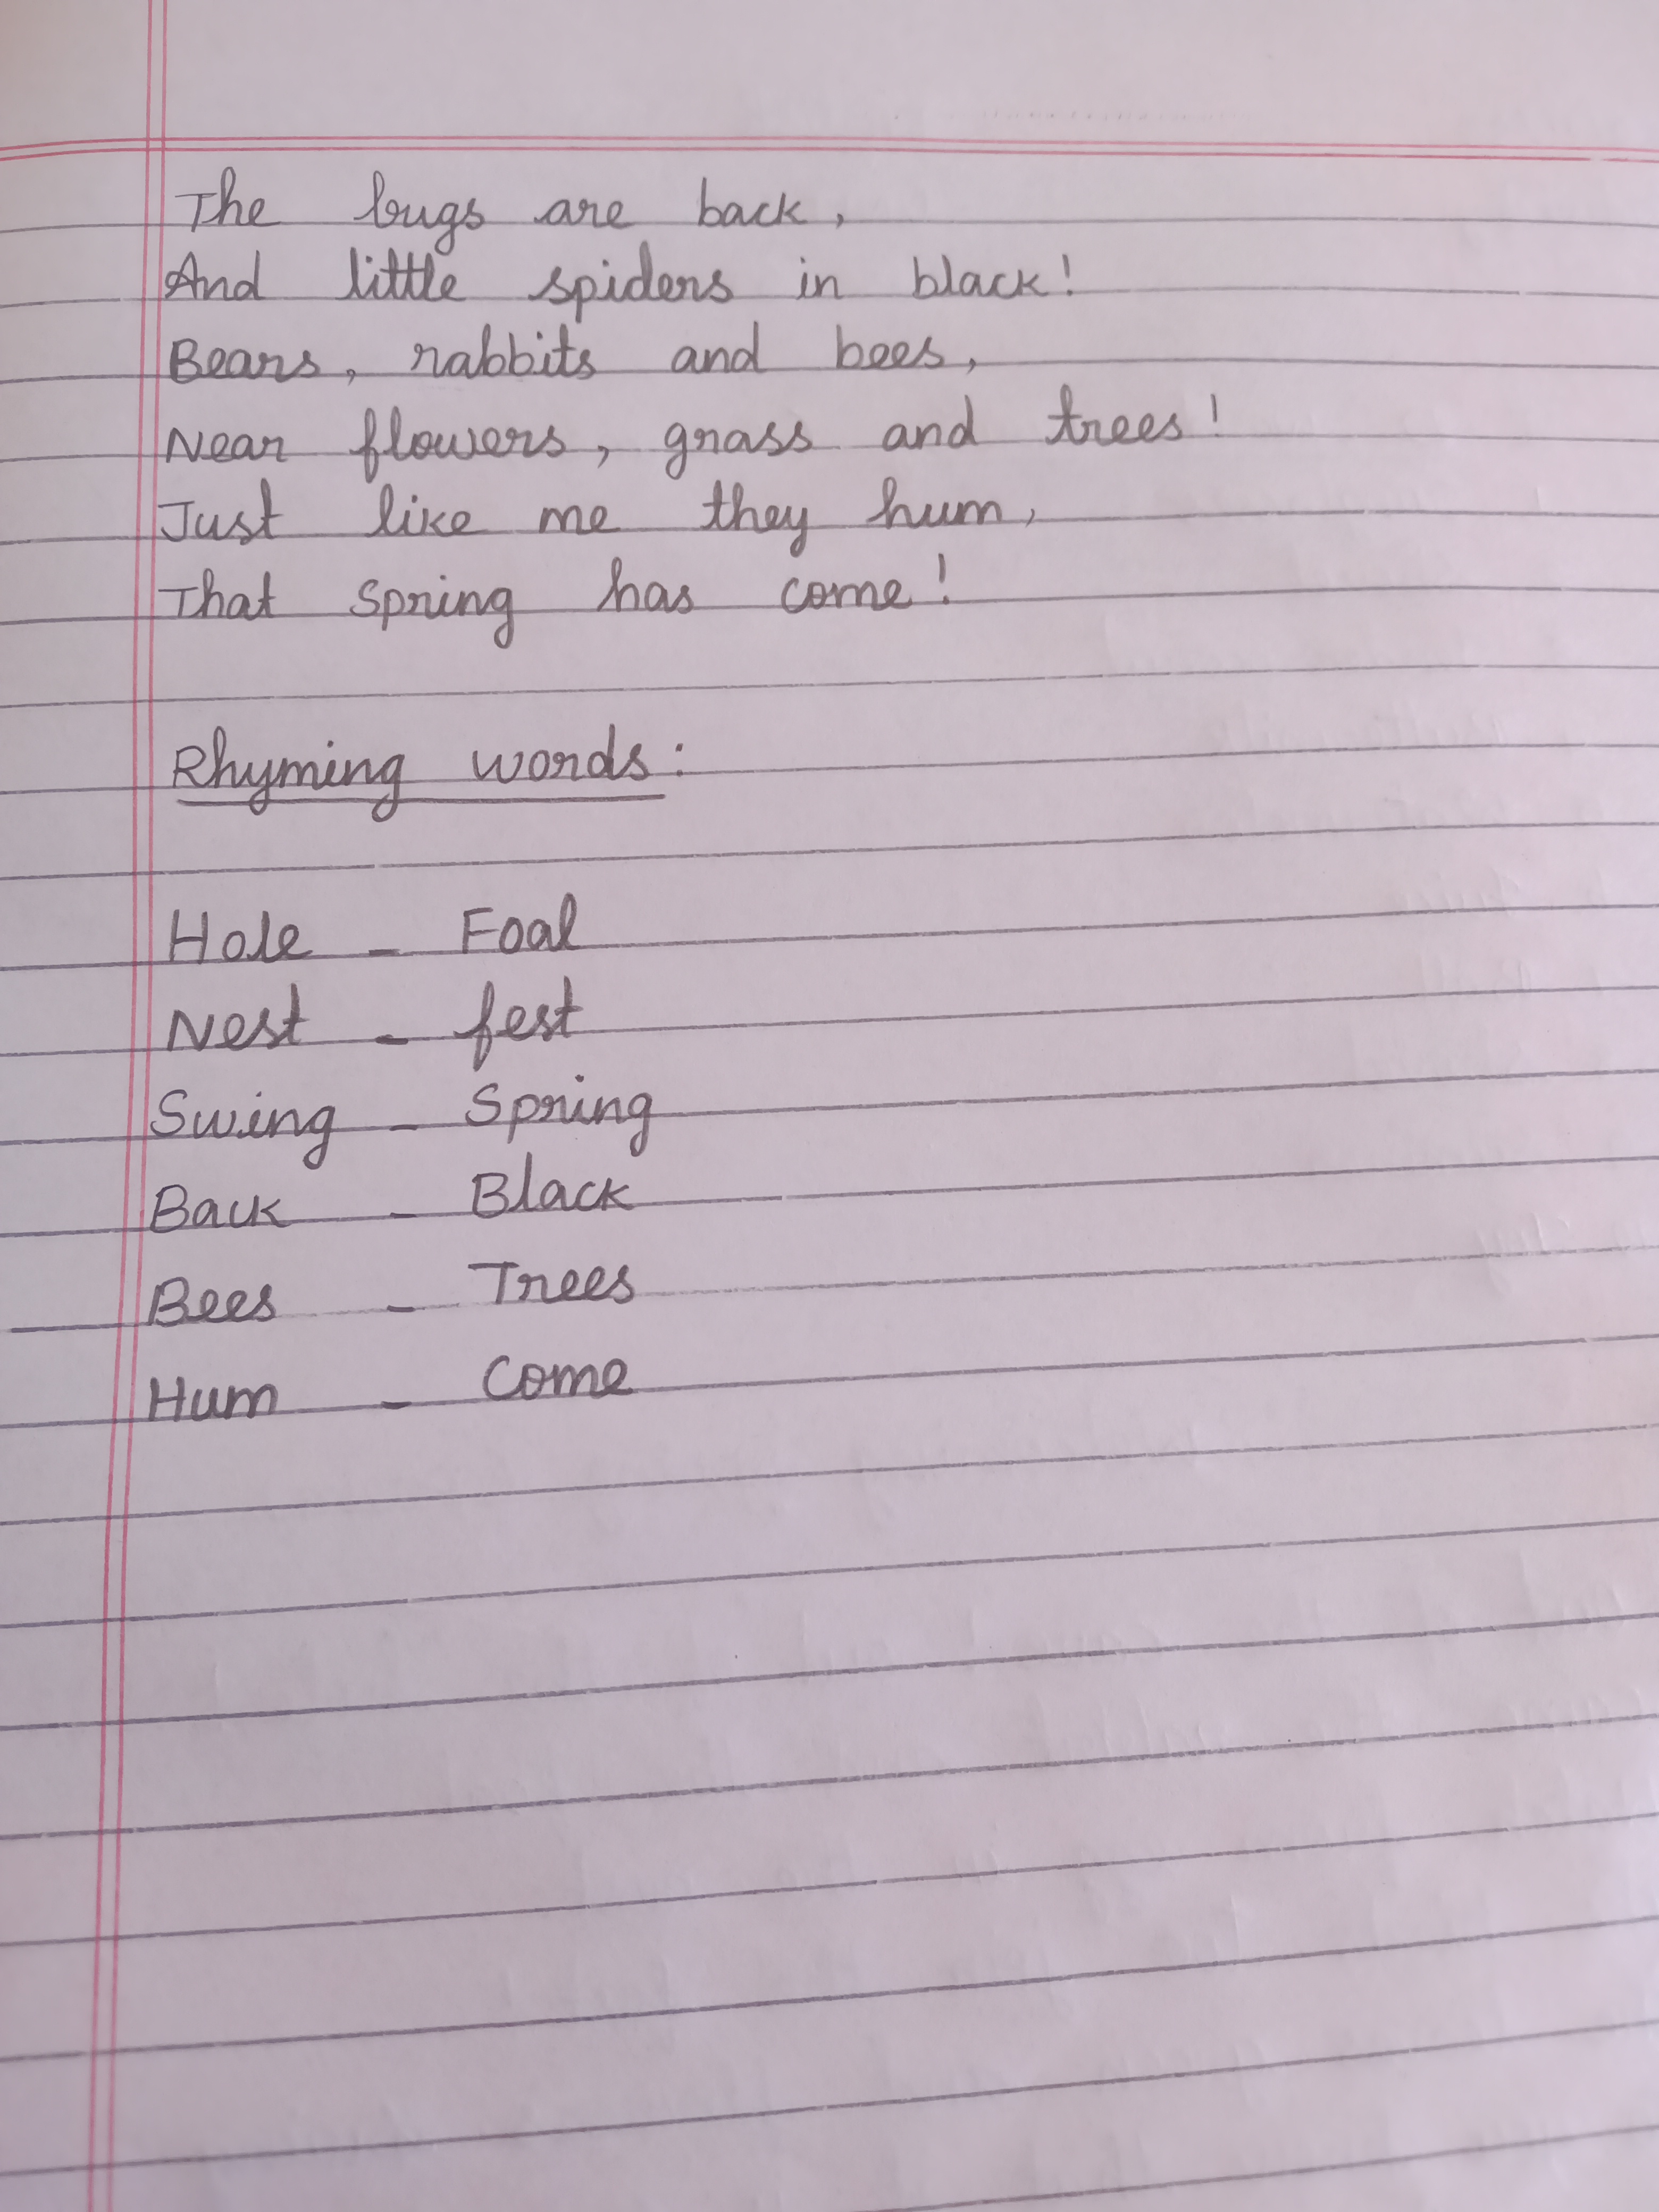 The bugs are back,
And little spiders in black!
Bears, rabbits and bees,
Near flowers, grass and trees!
Just like me they hum,
That spring has come!
Rhyming words:
Hole - Foal
Nest - fest
Swing - Spring
Back - Black
Bees - Trees
Hum - Come